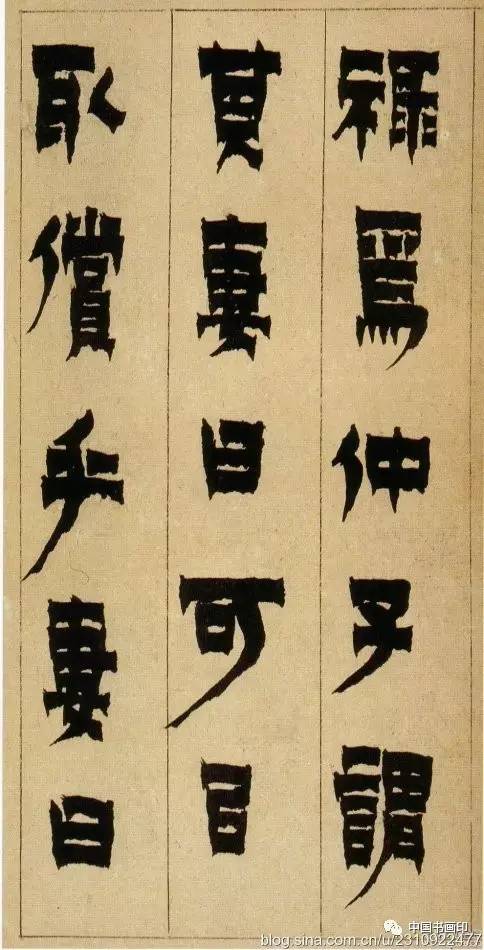 祿爲仲子謂
其妻曰可㠯
取償乎妻曰
中国书画印
blog.sina.com.cn/u/2310922477